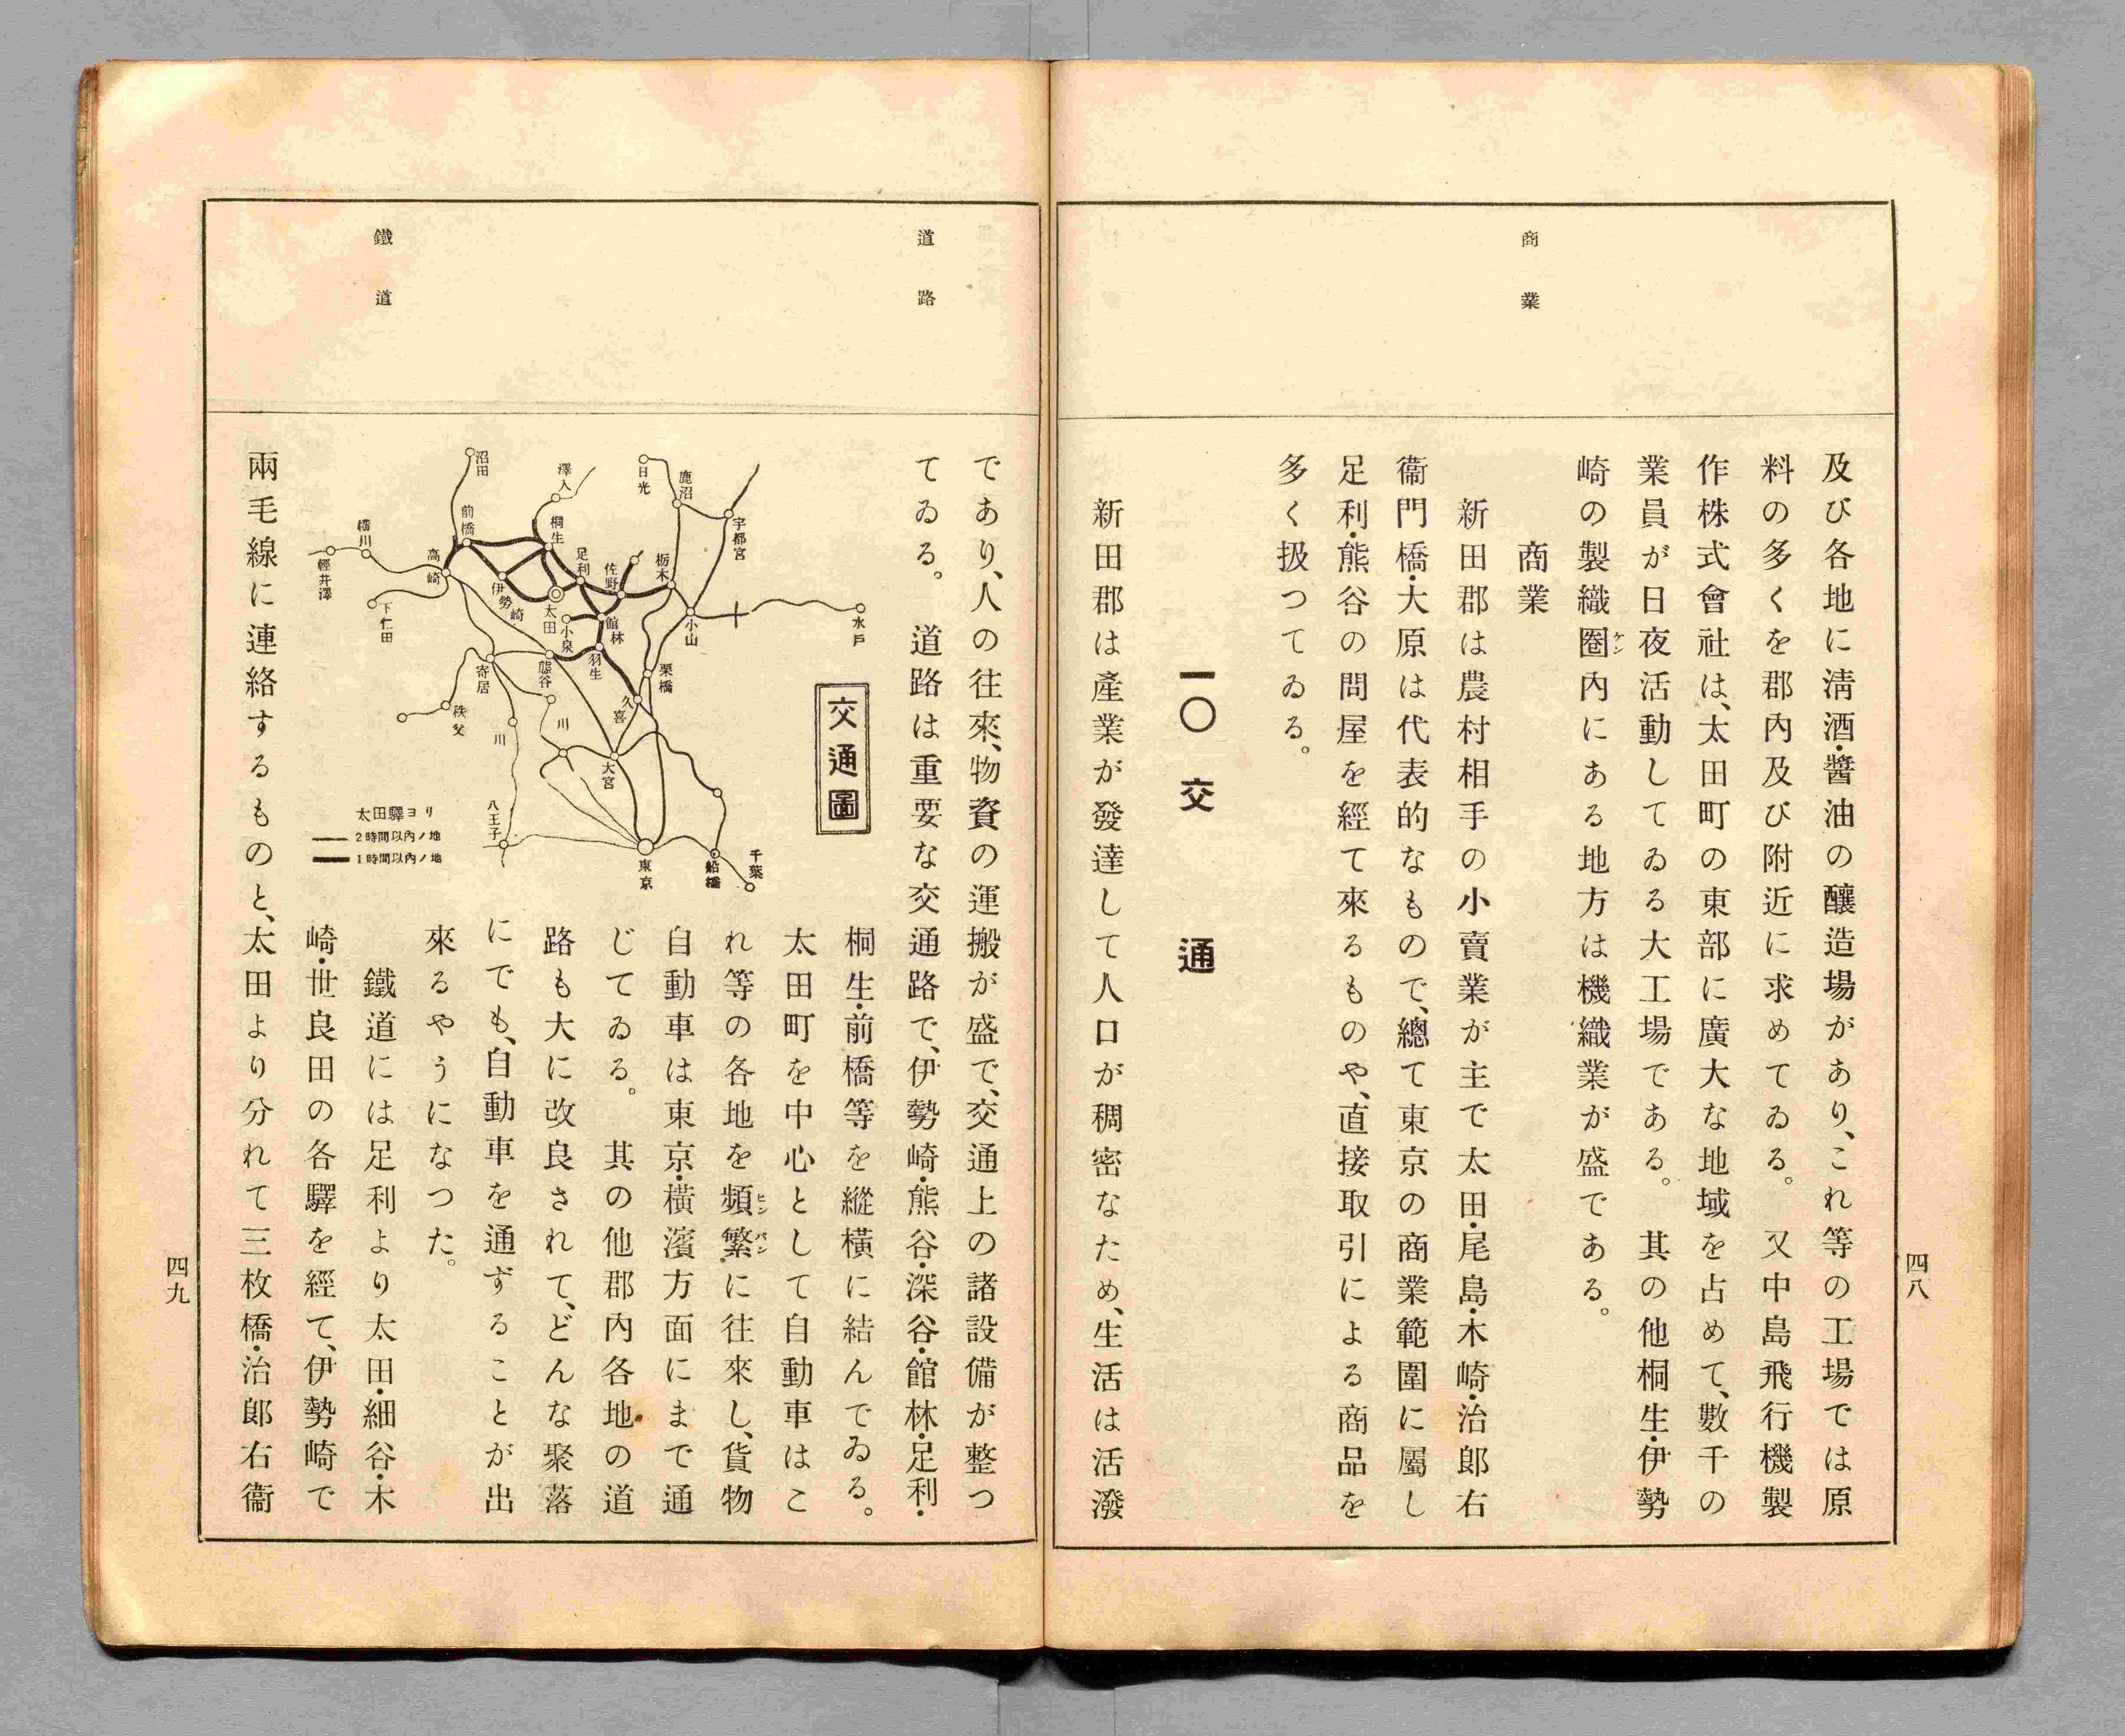 商業
及び各地に淸酒・醬油の釀造場があり、これ等の工場では原
料の多くを郡內及び附近に求めてゐる。又中島飛行機製
作株式會社は、太田町の東部に廣大な地域を占めて、數千の
業員が日夜活動してゐる大工場である。其の他桐生・伊勢
崎の製織圈內にある地方は機織業が盛である。
ケン
商業
新田郡は農村相手の小賣業が主で太田・尾島・木崎・治郞右
衞門橋・大原は代表的なもので、總て東京の商業範圍に屬し
足利・熊谷の問屋を經て來るものや、直接取引による商品を
多く扱つてゐる。
一〇 交通
新田郡は產業が發達して人口が稠密なため、生活は活潑
四八
道路
鐵道
であり、人の往來、物資の運搬が盛で、交通上の諸設備が整つ
てゐる。道路は重要な交通路で、伊勢崎・熊谷・深谷・館林・足利・
桐生・前橋等を縱橫に結んでゐる。
太田町を中心として自動車はこ
れ等の各地を頻繁に往來し、貨物
ヒンパン
自動車は東京・橫濱方面にまで通
じてゐる。其の他郡內各地の道
路も大に改良されて、どんな聚落
にでも、自動車を通ずることが出
來るやうになつた。
鐵道には足利より太田・細谷・木
崎・世良田の各驛を經て、伊勢崎で
兩毛線に連絡するものと、太田より分れて三枚橋・治郞右衞
交通圖
水戶
宇都宮
鹿沼
日光
澤入
沼田
桐生
前橋
橫川
輕井澤
高崎
下仁田
足利
佐野
栃木
小山
伊勢崎
太田
小泉
館林
羽生
熊谷
寄居
秩父
栗橋
久喜
川
川
大宮
八王子
東京
船橋
千葉
太田驛ヨリ
2時間以內ノ地
1時間以內ノ地
四九